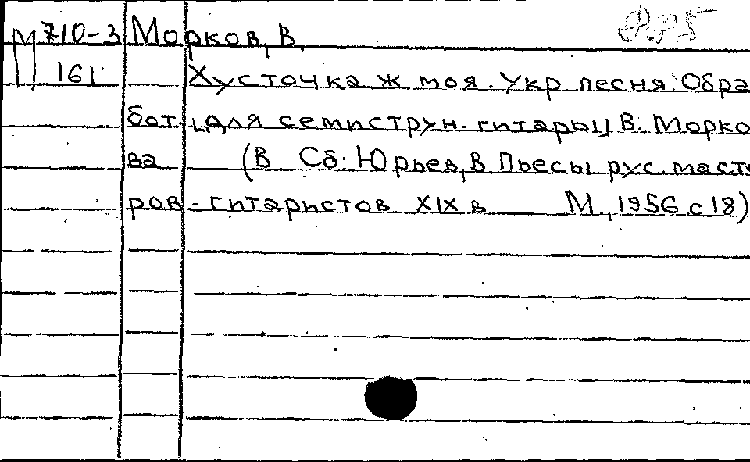 М 710-3 Морков, В.
161 Хусточка ж моя. Укр песня. Обра
бот. для семиструн. гитары В. Морко
ва (В Сб: Юрьев, В Пьесы рус. масте
ров-гитаристов XIX в М., 1956 с 18)